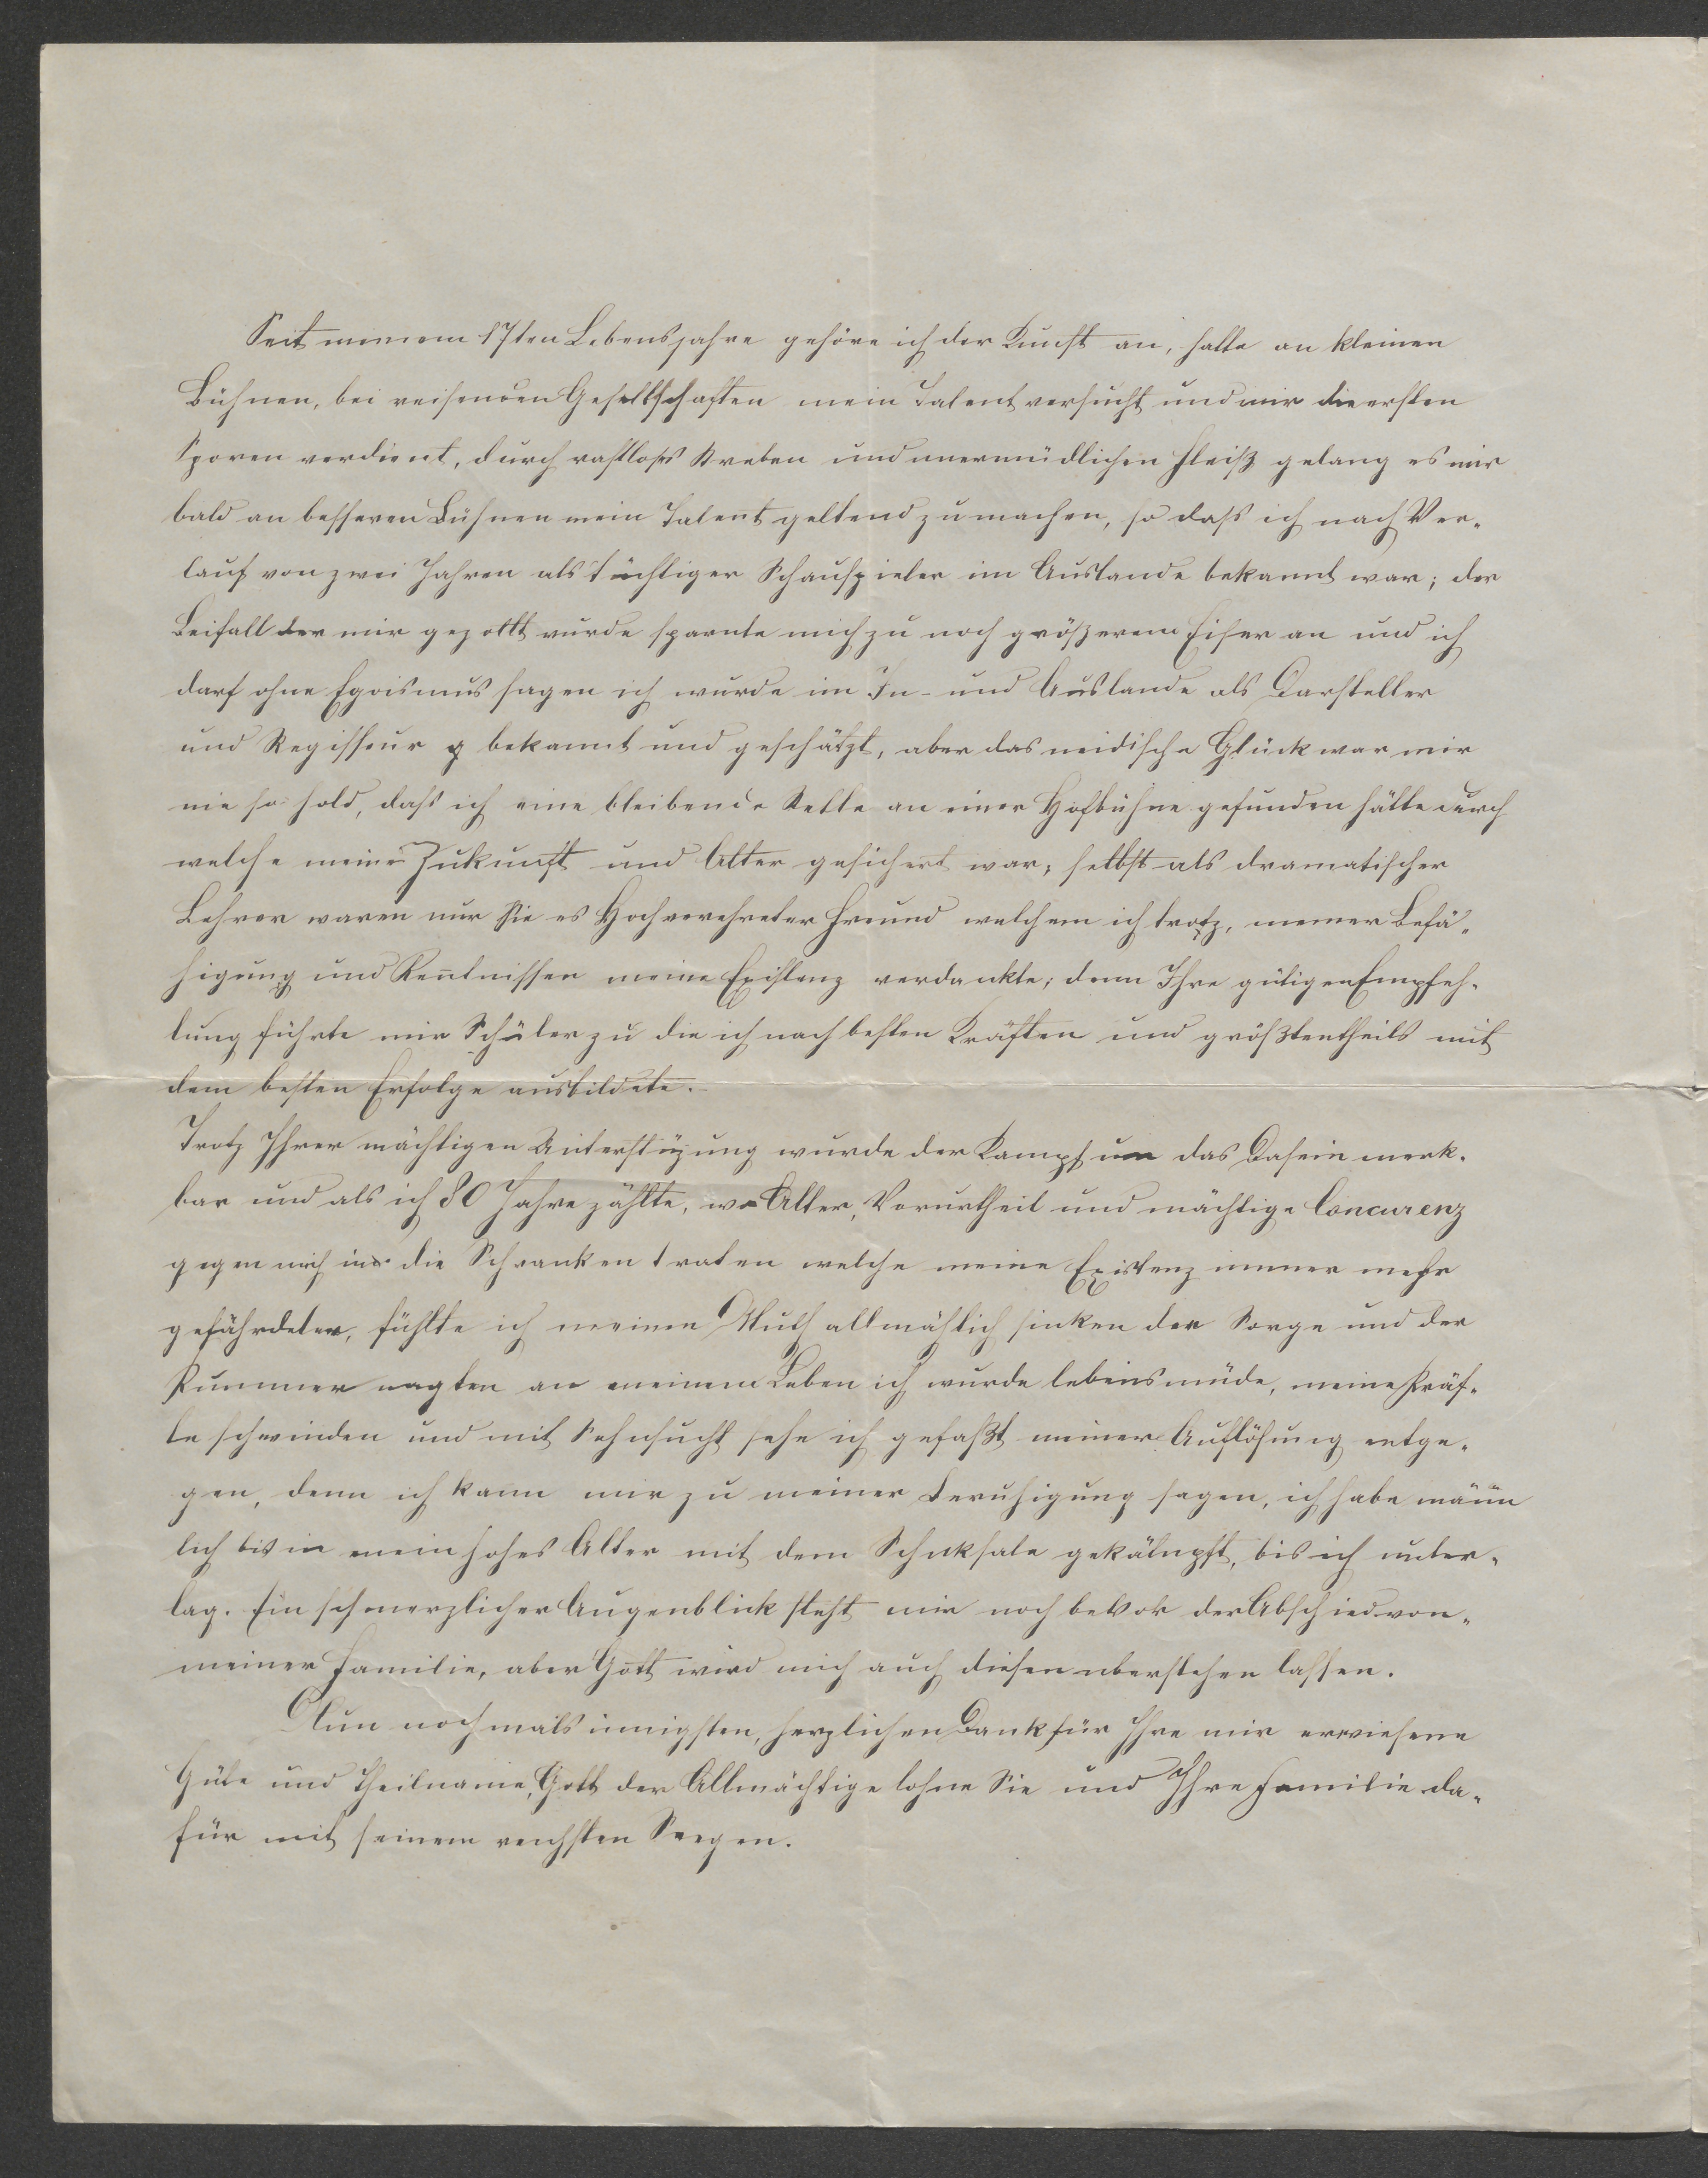 Seit meinem 17ten Lebensjahre gehöre ich der Kunst an, hatte an kleinen
Bühnen, bei reisenden Gesellschaften mein Talent versucht und mir die ersten
Sporen verdient, durch rastloses Streben und unermüdlichen Fleiß gelang es mir
bald an besseren Bühnen mein Talent geltend zu machen, so dass ich nach Ver-
lauf von zwei Jahren als tüchtiger Schauspieler im Auslande bekannt war; der
Beifall der mir gezollt wurde spornte mich zu noch größerem Eifer an und ich
darf ohne Egoismus sagen ich wurde im In- und Auslande als Darsteller
und Regisseur bekannt und geschätzt, aber das neidische Glück war mir
nie so hold, dass ich eine bleibende Stelle an einer Hofbühne gefunden hätte durch
welche meine Zukunft und Alter gesichert war; selbst als dramatischer
Lehrer waren nur Sie es Hochverehrter Freund welchem ich trotz, meiner Befä-
higung und Kentnissen meine Existenz verdankte; denn Ihre gütigen Empfeh-
lung führte mir Schüler zu die ich nach besten Kräften und größtentheils mit
dem besten Erfolge ausbildete.
Trotz Ihrer mächtigen Unterstüzung wurde der Kampf um das Dasein merk-
bar und als ich 80 Jahre zählte, wo Alter, Vorurtheil und mächtige Concurenz
gegen mich in die Schranken traten welche meine Existenz immer mehr
gefährdeten, fühlte ich meinen Muth allmählich sinken der Sorge und der
Kummer nagten an meinem Leben ich wurde lebensmüde, meine Kräf-
te schwinden und mit Sehnsucht sehe ich gefaßt meiner Auflösung entge-
gen, denn ich kann mir zu meiner Beruhigung sagen, ich habe männ
lich bis in mein hohes Alter mit dem Schiksale gekämpft, bis ich unter-
lag. Ein schmerzlicher Augenblick steht mir noch bevor der Abschied von-
meiner Familie, aber Gott wird mich auch diesen überstehen lassen.
Nun nochmals innigsten, herzlichen Dank für Ihre mir erwiesene
Güte und Theilname, Gott der Allmächtige lohne Sie und Ihre Familie da-
für mit seinem reichsten Seegen.